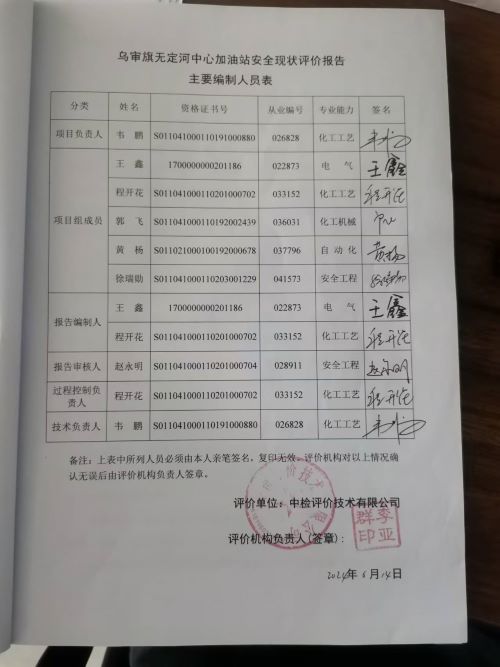 乌审旗无定河中心加油站安全现状评价报告
主要编制人员表
分类 姓名 资格证书号 从业编号 专业能力 签名
项目负责人 韦鹏 S011041000110191000880 026828 化工工艺
项目组成员 王鑫 1700000000201186 022873 电气 王鑫
程开花 S011041000110201000702 033152 化工工艺 程开花
郭飞 S011041000110192002439 036031 化工机械
黄杨 S011021000100192000678 037796 自动化 黄杨
徐瑞勋 S011041000110203001229 041573 安全工程
报告编制人 王鑫 1700000000201186 022873 电气 王鑫
程开花 S011041000110201000702 033152 化工工艺 程开花
报告审核人 赵永明 S011041000110201000704 028911 安全工程 赵永明
过程控制负责人 程开花 S011041000110201000702 033152 化工工艺 程开花
技术负责人 韦鹏 S011041000110191000880 026828 化工工艺
备注:上表中所列人员必须由本人亲笔签名,复印无效。评价机构对以上情况确
认无误后由评价机构负责人签章。
评价单位:中检评价技术有限公司
评价机构负责人(签章):
李亚群印
2024年6月14日